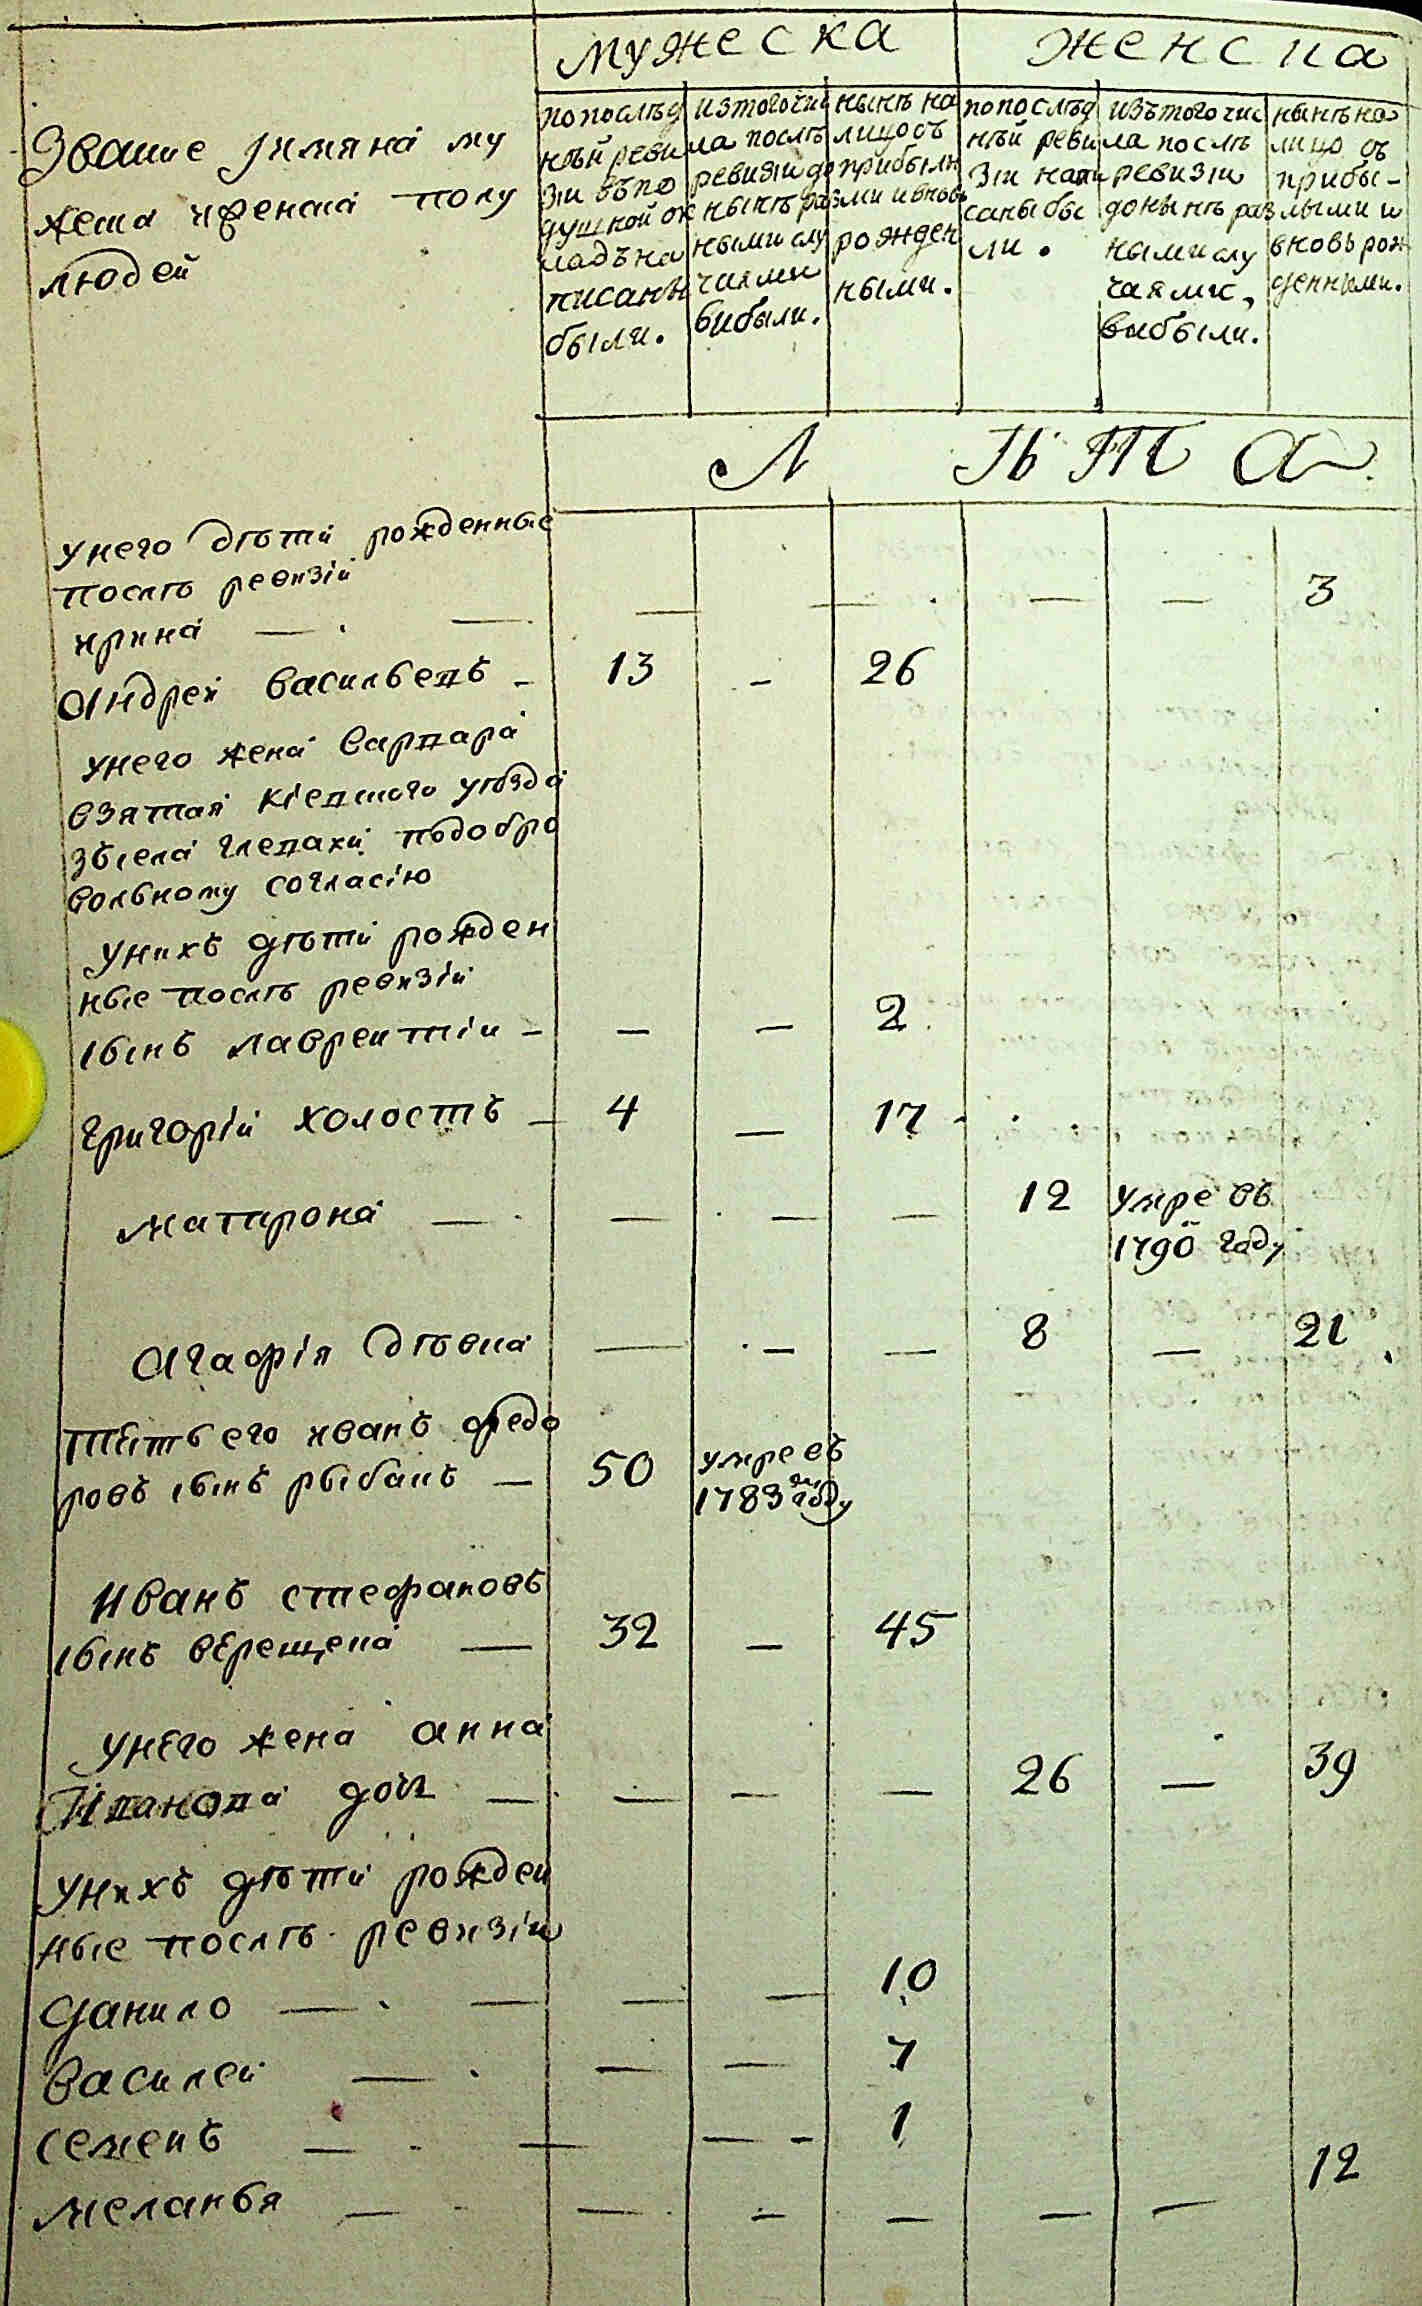 мужеска женска
Звание Iимяна му
жеска ифенска полу
людей
по послѣд
нѣй реви
зіи въ по
душной ок
ладъ на
писанѣ
были.
изтого чис
ла послѣ
ревизіи до
нынѣ раз
ными слу
чаями
выбыли.
нынѣ на
лицо съ
прибылы
ми и вновь
рожден
ными.
по послѣд
нѣй реви
зіи напи
саны бы
ли.
изъ того чис
ла послѣ
ревизіи
донынѣ раз
ными слу
чаями,
выбыли.
нынѣ на
лицо съ
прибы-
лыми и
вновь рож
денными.
Л ѣ т а
унего дѣти рожденные
послѣ ревизіи
ирина — — — — — — 3
Андрей васильевъ - 13 - 26
унего жена варвара
взятая кіевского уѣзда
зъ села глевахи подобро
вольному согласію
унихъ дѣти рожден
ные послѣ ревизіи
сынъ лаврентіи - — — 2
григорій холостъ - 4 — 17
матрона — — — — 12 умре въ
1790 году
Агафія дѣвка — - — 8 — 21
тѣсть его иванъ федо
ровъ сынъ рыбакъ — 50 умре въ
1783 году
Иванъ стефановъ
сынъ верещека — 32 — 45
унего жена анна
Иванова дочь — — — — 26 — 39
унихъ дѣти рожден
ные послѣ ревизіи
данило — — — — 10
василей — — — 7
семенъ — — — - 1
меланья — — - — — — 12